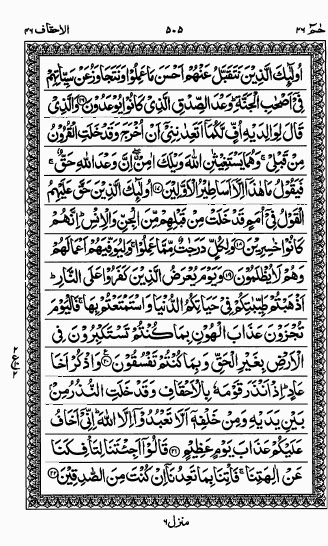 حٰمٓ ٢٦ ٥٠٥ الاحقاف ٤٦
اُولٰٓئِكَ الَّذِيْنَ نَتَقَبَّلُ عَنْهُمْ اَحْسَنَ مَا عَمِلُوْا وَنَتَجَاوَزُ عَنْ سَيِّاٰتِهِمْ
فِيْٓ اَصْحٰبِ الْجَنَّةِ ؕ وَعْدَ الصِّدْقِ الَّذِيْ كَانُوْا يُوْعَدُوْنَ ﴿۱۶﴾ وَالَّذِيْ
قَالَ لِوَالِدَيْهِ اُفٍّ لَّكُمَآ اَتَعِدٰنِنِيْٓ اَنْ اُخْرَجَ وَقَدْ خَلَتِ الْقُرُوْنُ
مِنْ قَبْلِيْ ۚ وَهُمَا يَسْتَغِيْثٰنِ اللّٰهَ وَيْلَكَ اٰمِنْ ۖ اِنَّ وَعْدَ اللّٰهِ حَقٌّ ۚ
فَيَقُوْلُ مَا هٰذَآ اِلَّآ اَسَاطِيْرُ الْاَوَّلِيْنَ ﴿۱۷﴾ اُولٰٓئِكَ الَّذِيْنَ حَقَّ عَلَيْهِمُ
الْقَوْلُ فِيْٓ اُمَمٍ قَدْ خَلَتْ مِنْ قَبْلِهِمْ مِّنَ الْجِنِّ وَالْاِنْسِ ؕ اِنَّهُمْ
كَانُوْا خٰسِرِيْنَ ﴿۱۸﴾ وَلِكُلٍّ دَرَجٰتٌ مِّمَّا عَمِلُوْا ۚ وَلِيُوَفِّيَهُمْ اَعْمَالَهُمْ
وَهُمْ لَا يُظْلَمُوْنَ ﴿۱۹﴾ وَيَوْمَ يُعْرَضُ الَّذِيْنَ كَفَرُوْا عَلَى النَّارِ ؕ
اَذْهَبْتُمْ طَيِّبٰتِكُمْ فِيْ حَيَاتِكُمُ الدُّنْيَا وَاسْتَمْتَعْتُمْ بِهَا ۚ فَالْيَوْمَ
تُجْزَوْنَ عَذَابَ الْهُوْنِ بِمَا كُنْتُمْ تَسْتَكْبِرُوْنَ فِي
الْاَرْضِ بِغَيْرِ الْحَقِّ وَبِمَا كُنْتُمْ تَفْسُقُوْنَ ﴿۲۰﴾ وَاذْكُرْ اَخَا
عَادٍ ؕ اِذْ اَنْذَرَ قَوْمَهٗ بِالْاَحْقَافِ وَقَدْ خَلَتِ النُّذُرُ مِنْۢ
بَيْنِ يَدَيْهِ وَمِنْ خَلْفِهٖٓ اَلَّا تَعْبُدُوْٓا اِلَّا اللّٰهَ ؕ اِنِّيْٓ اَخَافُ
عَلَيْكُمْ عَذَابَ يَوْمٍ عَظِيْمٍ ﴿۲۱﴾ قَالُوْٓا اَجِئْتَنَا لِتَاْفِكَنَا
عَنْ اٰلِهَتِنَا ۚ فَاْتِنَا بِمَا تَعِدُنَآ اِنْ كُنْتَ مِنَ الصّٰدِقِيْنَ ﴿۲۲﴾
منزل ٦